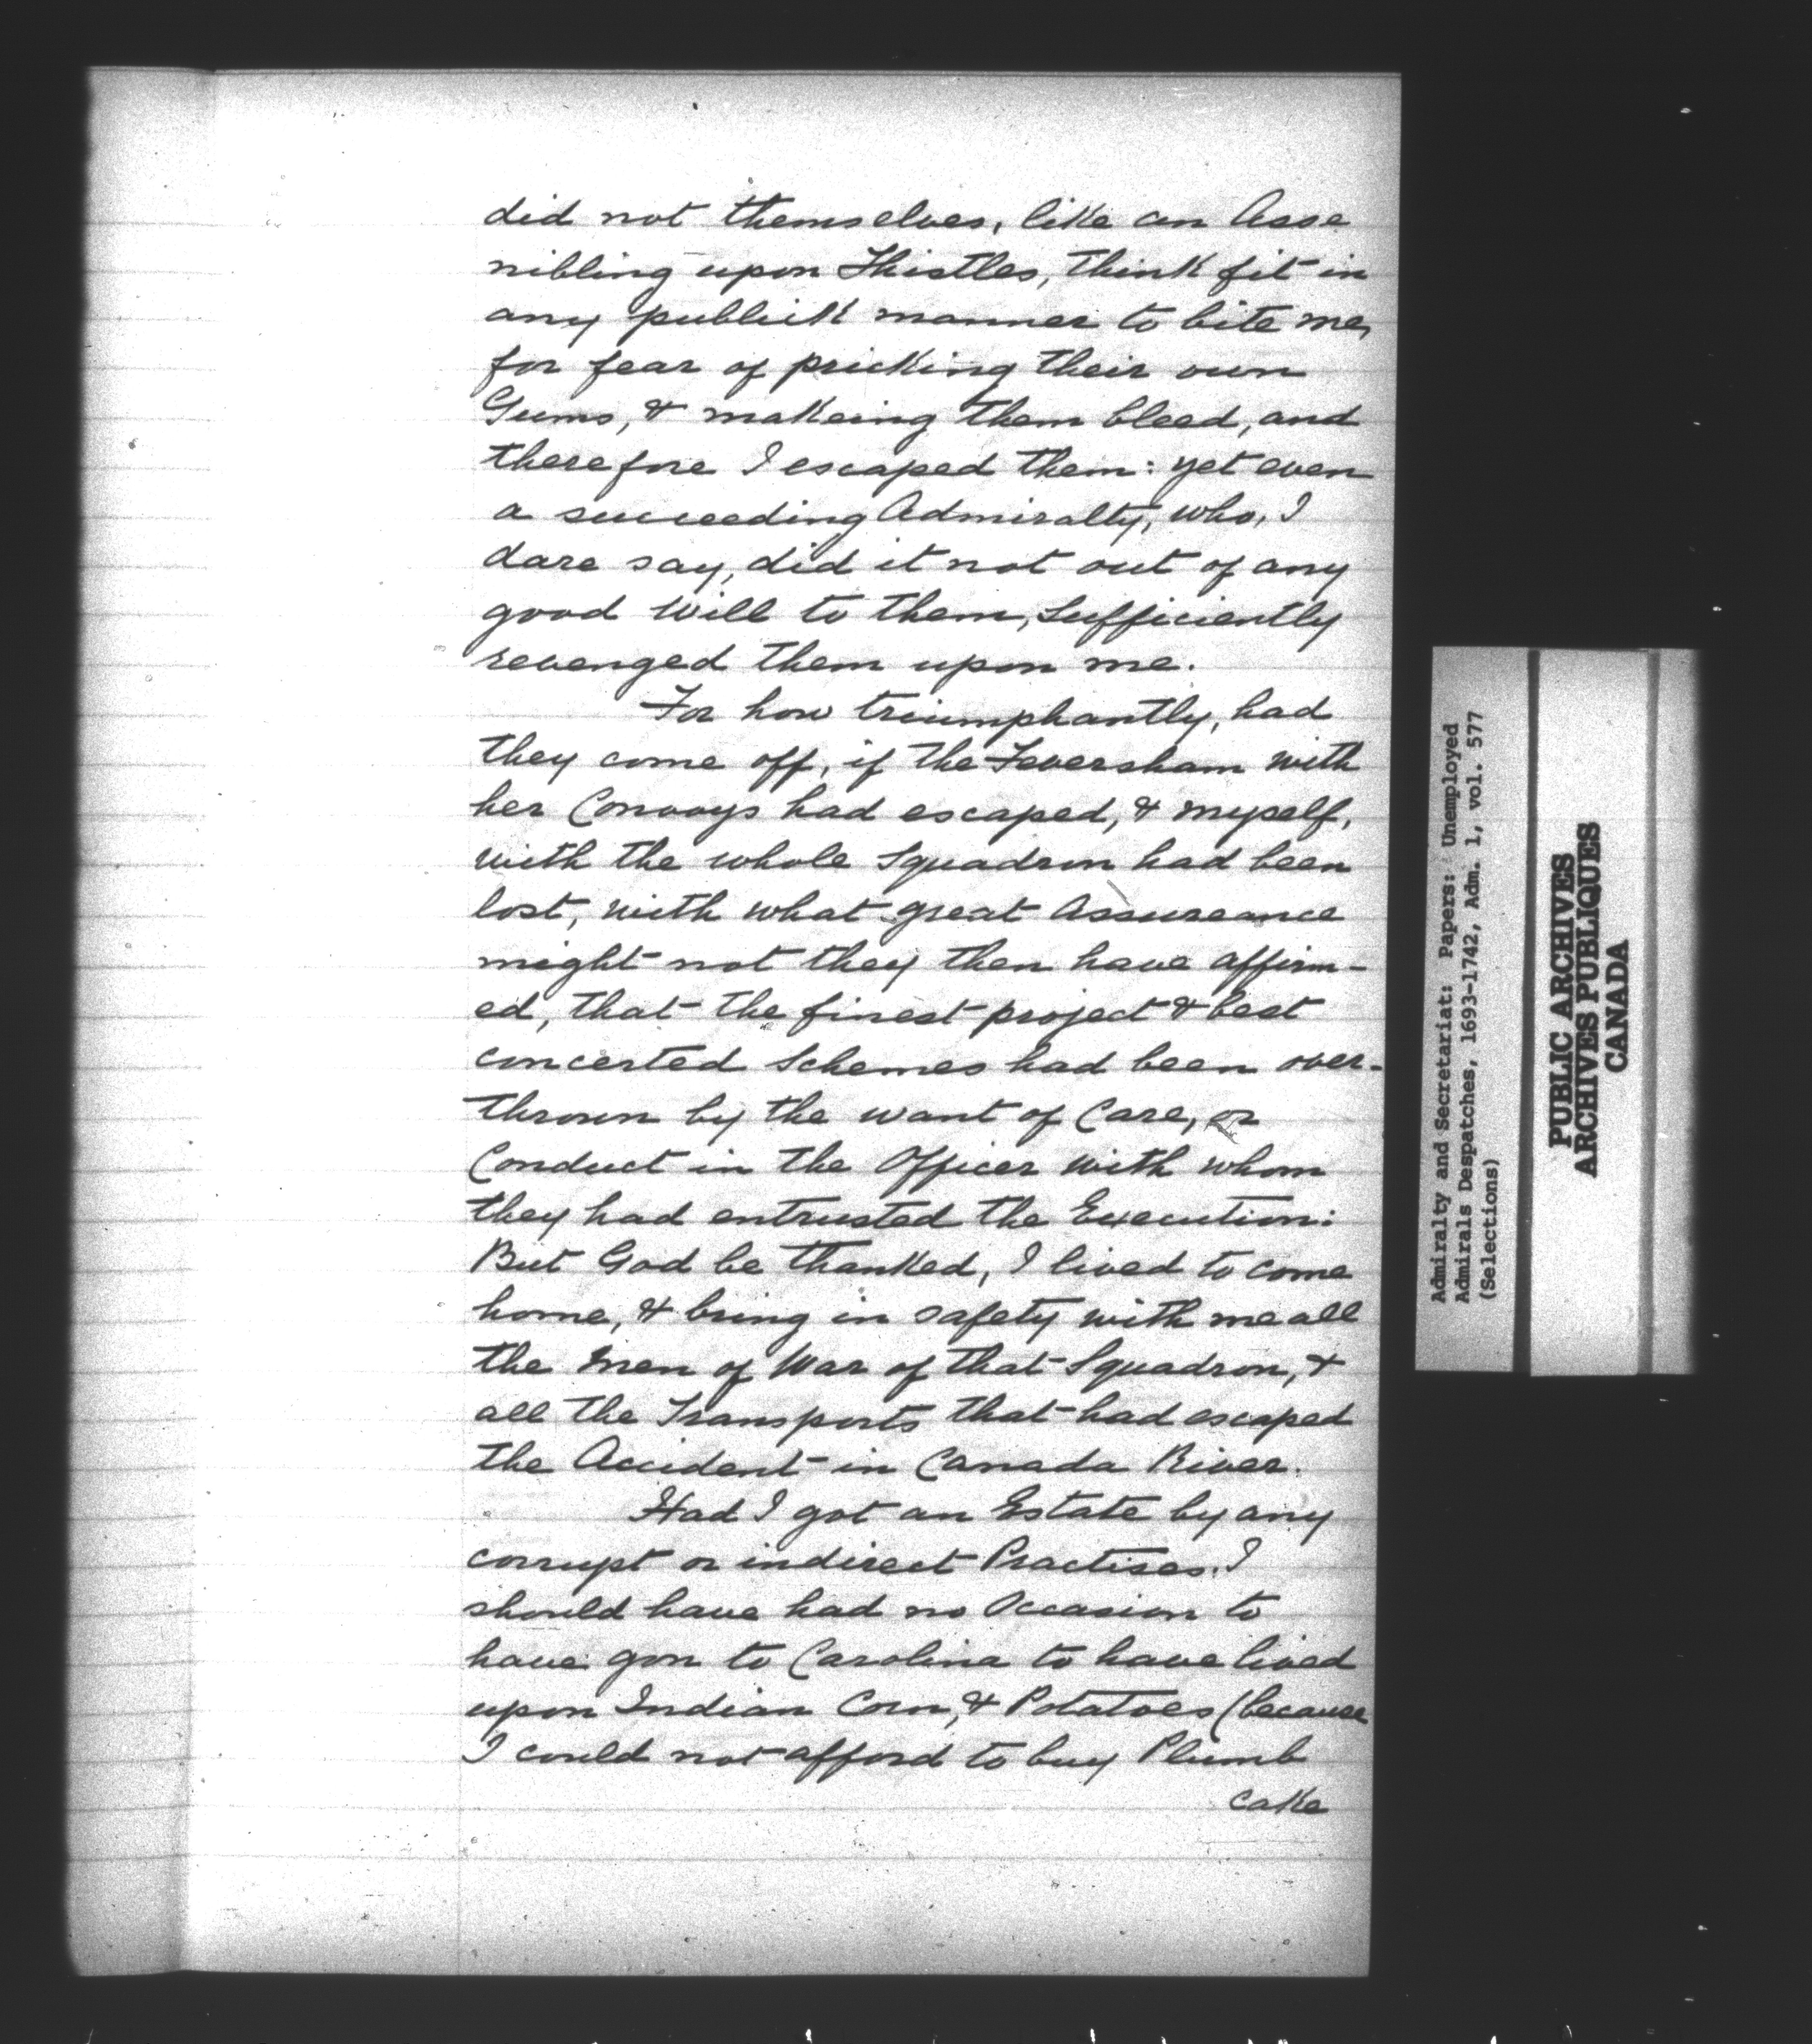 did not themselves, like an Asse
nibling upon Thistles, think fit in
any publick manner to bite me,
for fear of pricking their own
Gums, & makeing them bleed, and
therefore I escaped them: yet even
a succeeding Admiralty, who, I
dare say, did it not out of any
good Will to them, Sufficiently
revenged them upon me.
For how triumphantly, had
they come off, if the Feversham with
her Convoys had escaped, & myself,
with the whole Squadron had been
lost, with what great Assureance
might not they then have affirm-
ed, that the finest project & best
concerted Schemes had been over-
thrown by the want of Care, or
Conduct in the Officer with whom
they had entrusted the Execution:
But God be thanked, I lived to come
home, & bring in safety with me all
the Men of War of that Squadron, &
all the Transports that had escaped
the Accident in Canada River.
Had I got an Estate by any
corrupt or indirect Practises. I
should have had no Occasion to
have gon to Carolina to have lived
upon Indian Corn, & Potatoes (because
I could not afford to buy Plumb
cake
Admiralty and Secretariat: Papers: Unemployed
Admirals Despatches, 1693-1742, Adm. 1, vol. 577
(Selections)
PUBLIC ARCHIVES
ARCHIVES PUBLIQUES
CANADA